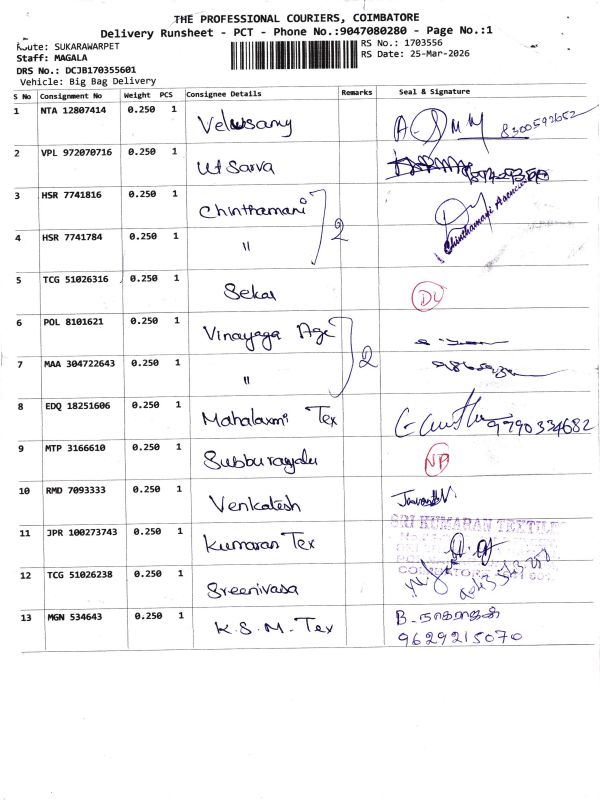 THE PROFESSIONAL COURIERS, COIMBATORE
Delivery Runsheet - PCT - Phone No.:9047080280 - Page No.:1
Route: SUKARAWARPET
RS No.: 1703556
Staff: MAGALA
RS Date: 25-Mar-2026
DRS No.: DCJB170355601
Vehicle: Big Bag Delivery
S No Consignment No Weight PCS Consignee Details Remarks Seal & Signature
1 NTA 12807414 0.250 1 Velusamy 8300592652
2 VPL 972070716 0.250 1 Ut Sarva
3 HSR 7741816 0.250 1 Chinthamani 2 Chinthamani Agencies
4 HSR 7741784 0.250 1 "
5 TCG 51026316 0.250 1 Sekar DL
6 POL 8101621 0.250 1 Vinayaga Age 2
7 MAA 304722643 0.250 1 "
8 EDQ 18251606 0.250 1 Mahalaxmi Tex 9790334682
9 MTP 3166610 0.250 1 Subburayalu NA
10 RMD 7093333 0.250 1 Venkatesh
SRI KUMARAN TEXTILE
11 JPR 100273743 0.250 1 Kumaran Tex
12 TCG 51026238 0.250 1 Sreenivasa
13 MGN 534643 0.250 1 K.S.M. Tex B. நாகராஜன்
9629215070